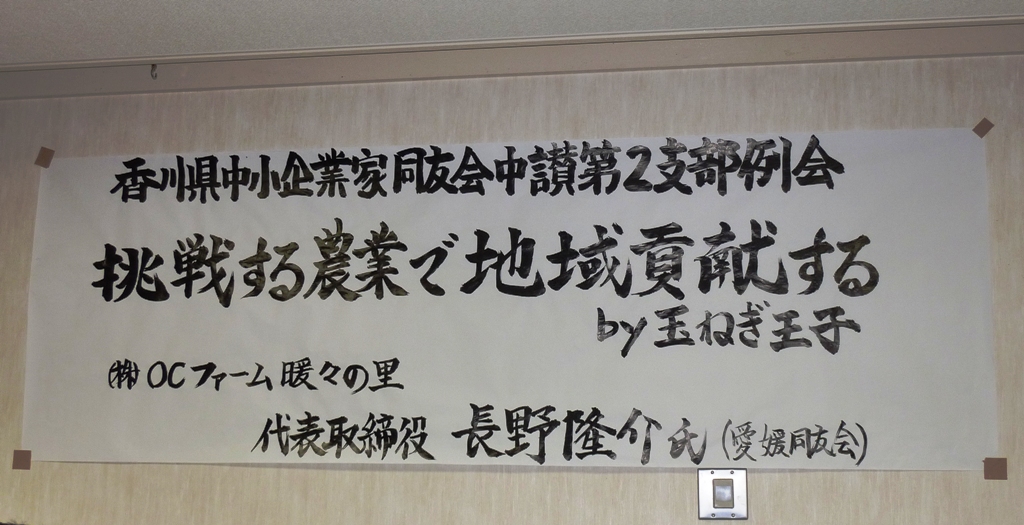 香川県中小企業家同友会中讃第2支部例会
挑戦する農業で地域貢献する
by玉ねぎ王子
㈱OCファーム暖々の里
代表取締役 長野隆介氏(愛媛同友会)